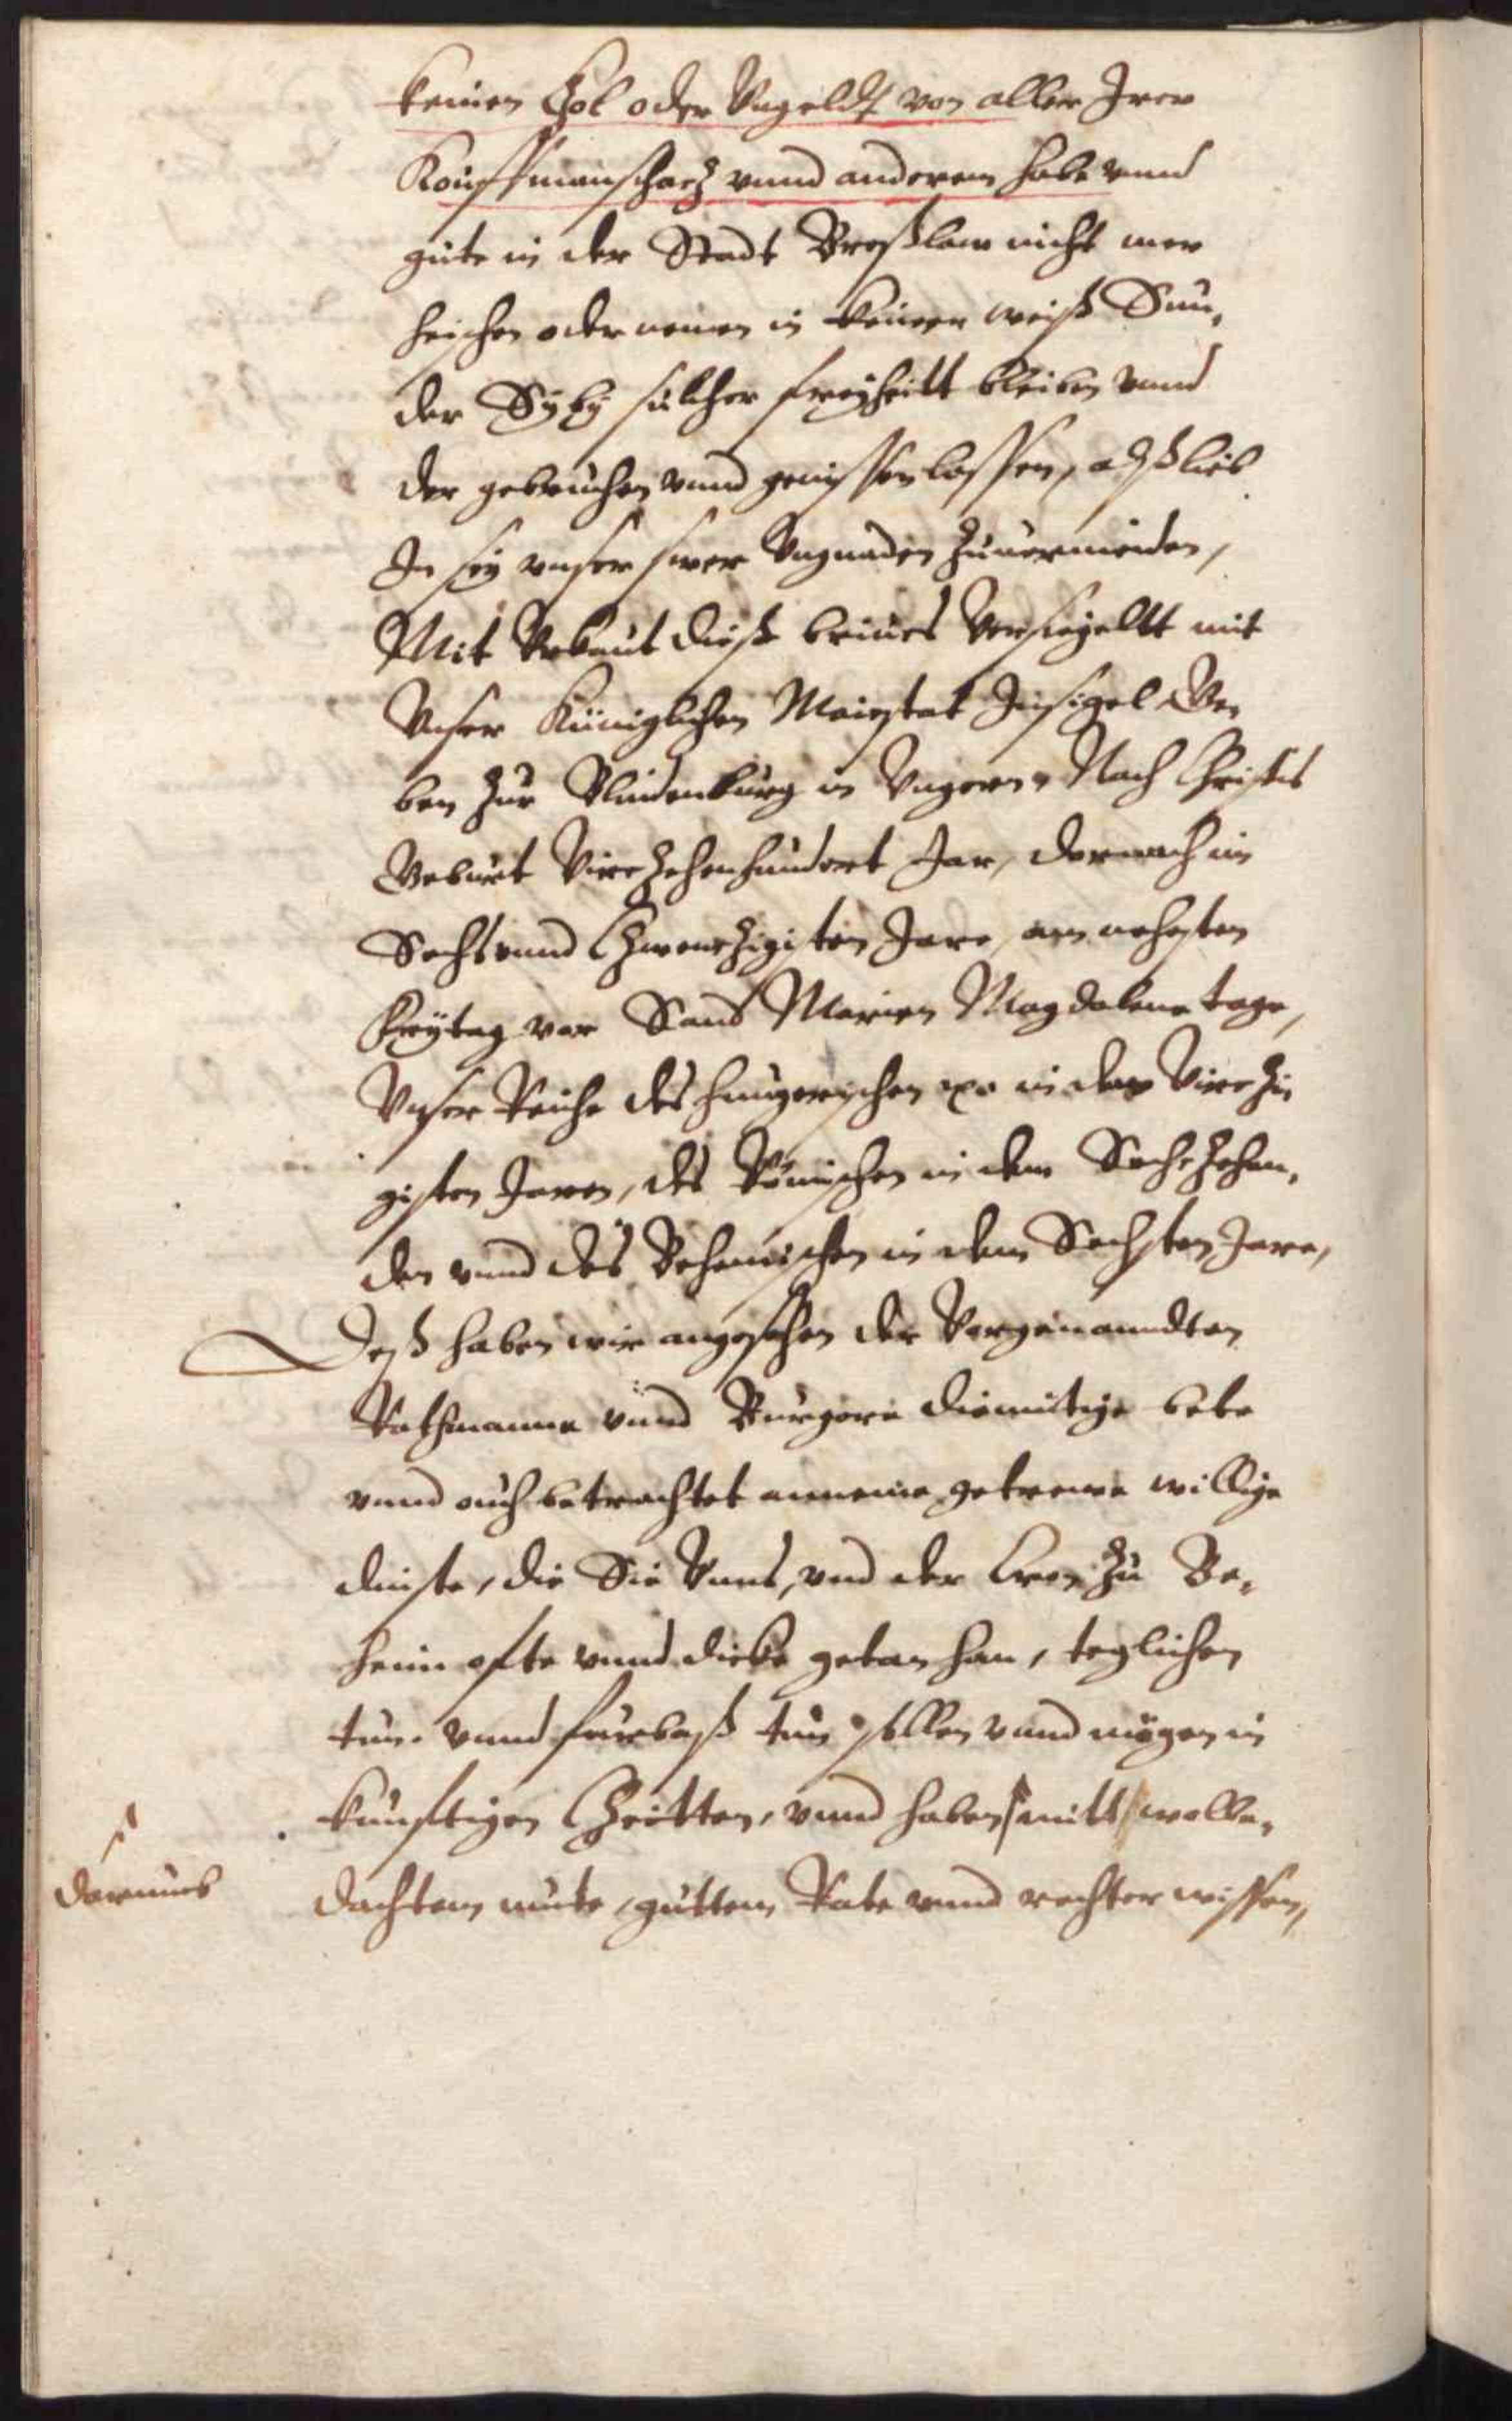 keinen Zol oder Vngeldt von aller Irer
Kouffmanschacz vnnd anderem habe vnnd
gute in der Stadt Breßlaw nicht mer
heischen oder nemen in keiner weiß Sun-
der Sÿ bÿ sulcher freÿheitt bleiben vnnd
der gebruchen vnnd genissen lassen, alß lieb
In seÿ vnser swer Vngnaden zuuermeiden,
Mit Vrkunt dieß brieues Versigellt mit
Vnser Küniglichen Maiestat Insigel Ge-
ben zur Blindenburg in Vngern Nach Christs
Geburt Vierzehenhundert Jar, dornach im
Sechsvnnd Czwenczigisten Jare, am nehsten
Freÿtag vor Sand Marien Magdalene tage,
Vnser Reiche des hungerischen xc in dem Vierczi
gisten Jaren, des Römischen in dem Sechczehen-
den vnnd des Behemischen in dem Sechsten Jare,
Deß haben wir angesehen der Vorgenanndten
Rathmanne vnnd Burgere diemütige bete
vnnd ouch betrachtet anneme getrewe willige
dinste, die Sie Vnns, vnd der Cron zu Be-
heim ofte vnnd dicke getan han, teglichen
tun. vnnd furbaß tun sollen vnnd mögen in
kunfftigen Czeitten, vnnd haben mitt wolbe-
dachtem mute, guttem Rate vnnd rechter wissen,
dorumb